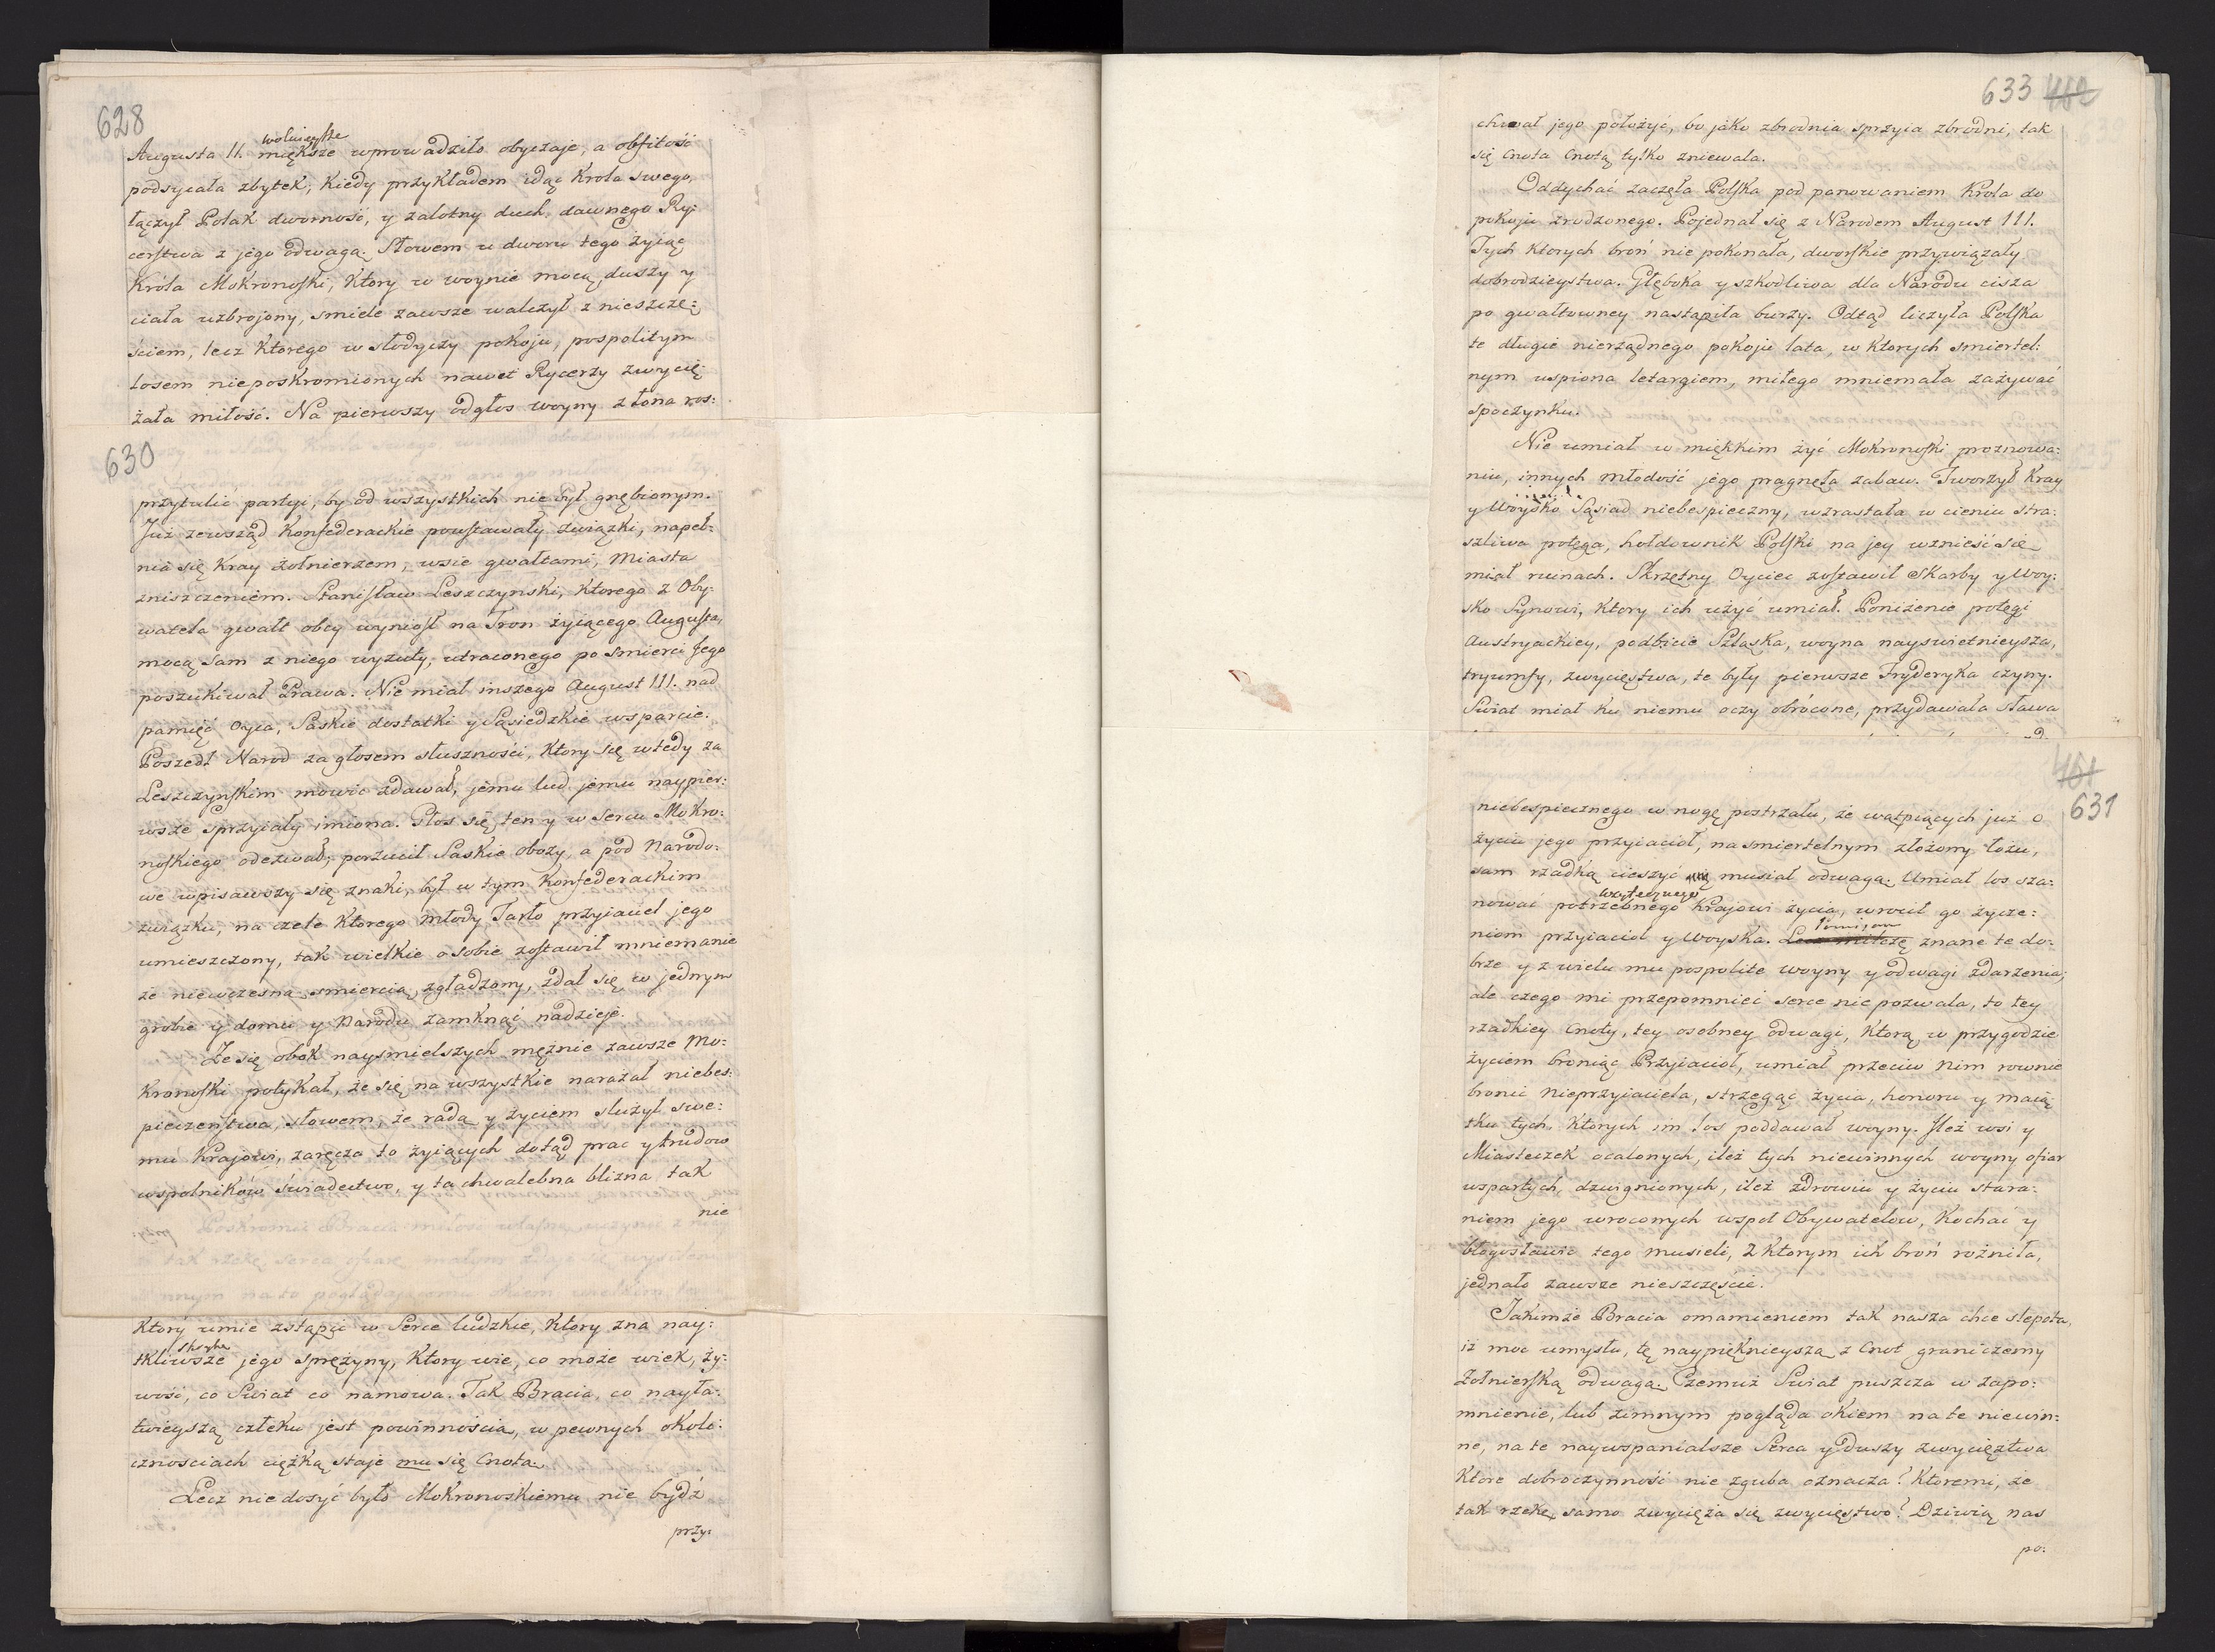 628
wolnieysze
Augusta II. miększe wprowadziło obyczaje, a obfitość
podsycała zbytek, kiedy przykładem idąc Krola swego,
łączył Polak dworność, y zalotny duch dawnego Ry:
cerstwa z jego odwagą. Słowem u dworu tego żyiąc
Króla Mokronoski, ktory w woynie mocą duszy y
ciała uzbrojony, smiele zawsze walczył z nieszczę:
ściem, lecz ktorego w słodyczy pokoju, pospolitym
losem nieposkromionych nawet Rycerzy zwycię:
żała miłość. Na pierwszy odgłos woyny z łona ros:
630
przytulić partyi, by od wszystkich nie był gnębionym.
Już zewsząd Konfederackie powstawały związki, napeł:
nia się Kray żołnierzem, wsie gwałtami, Miasta
zniszczeniem. Stanisław Leszczynski, ktorego z Oby:
watela gwałt obcy wyniosł na Tron żyiącego Augusta,
mocą sam z niego wyzuty, utraconego po smierci Jego
poszukiwał Prawa. Nie miał inszego August III. nad
pamięć Oyca, Saskie dostatki y Sąsiedzkie wsparcie.
Poszedł Narod za głosem słuszności, ktory się wtedy za
Leszczynskim mowić zdawał, jemu lud jemu naypier:
wsze sprzyiały imiona. Głos się ten y w Sercu Mokro:
noskiego odezwał, porzucił Saskie obozy, a pod Narodo:
we wpisawszy się znaki, był w tym Konfederackim
związku, na czele ktorego młody Tarło przyiaciel jego
umieszczony, tak wielkie o sobie zostawił mniemanie
że niewczesną smiercią zgładzony, zdał się w jednym
grobie y domu y Narodu zamknąć nadzieje.
Że się obok naysmielszych mężnie zawsze Mo:
kronoski potykał, że się na wszystkie narażał niebes:
pieczeństwa, słowem, że radą y życiem służył swe:
mu Krajowi, zaręcza to żyiących dotąd prac y trudow
wspolników świadectwo, y ta chwalebna blizna tak
nie
Ktory umie zstąpić w Serce ludzkie, ktory zna nay:
skryte
tkliwsze jego sprężyny, ktory wie, co może wiek, ży:
wość, co Swiat co namowa. Tak Bracia, co nayła:
twieyszą człeku jest powinnością, w pewnych okoli:
cznosciach ciężką staje mu się Cnotą.
Lecz nie dosyć było Mokronoskiemu nie bydź
przy:
633 462
chwał jego położyć, bo jako zbrodnia sprzyia zbrodni, tak
się Cnota Cnotą tylko zniewala.
Oddychać zaczęła Polska pod panowaniem Krola do
pokoju zrodzonego. Pojednał się z Narodem August III.
Tych ktorych broń nie pokonała, dworskie przywiązały
dobrodzieystwa. Głęboka y szkodliwa dla Narodu cisza
po gwałtowney nastąpiła burzy. Odtąd liczyła Polska
te długie nierządnego pokoju lata, w ktorych smiertel:
nym uspiona letargiem, miłego mniemała zażywać
spoczynku.
Nie umiał w miękkim żyć Mokronoski proznowa:
niu, innych młodość jego pragnęła zabaw. Tworzył Kray
y Woysko Sąsiad niebespieczny, wzrastała w cieniu stra:
szliwa potęga, hołdownik Polski na jey wznieść się
miał ruinach. Skrzętny Oyciec zostawił Skarby y Woy:
sko Synowi, ktory ich użyć umiał. Poniżenie potęgi
Austryackiey, podbicie Szląska, woyna nayswietnieysza,
tryumfy, zwycięstwa, te były pierwsze Fryderyka czyny.
Swiat miał ku niemu oczy obrócone, przydawała sława
461
631
niebespiecznego w nogę postrzału, że wątpiących już o
życiu jego przyiacioł, na smiertelnym złożony łożu,
sam rzadką cieszyć musiał odwagą. Umiał los sza:
walecznego
nować potrzebnego Krajowi życia, wrocił go życze:
niom przyiacioł y Woyska. Lecz milczę znane te do:
Pomijam
brze y z wielu mu pospolite woyny y odwagi zdarzenia;
ale czego mi przepomnieć serce nie pozwala, to tey
rzadkiey Cnoty, tey osobney odwagi, ktorą w przygodzie
życiem broniąc Przyiacioł, umiał przeciw nim rownie
bronić Nieprzyiaciela, strzegąc życia, honoru y mają:
tku tych, ktorych im los poddawał woyny. Ileż wsi y
Miasteczek ocalonych, ileż tych niewinnych woyny ofiar
wspartych, dzwignionych, ileż zdrowiu y życiu stara:
niem jego wroconych wspoł Obywatelow, kochać y
błogosławić tego musieli, z ktorym ich broń rożniła,
jednało zawsze nieszczęście.
Jakimże Bracia omamieniem tak nasza chce slepota,
iż moc umysłu, tę naypięknieyszą z Cnot graniczemy
Żołnierską odwagą. Czemuż Swiat puszcza w zapo:
mnienie, lub zimnym pogląda okiem na te niewin:
ne, na te naywspanialsze Serca y duszy zwycięztwa
Ktore dobroczynność nie zguba oznacza? Ktoremi, że
tak rzekę, samo zwycięża się zwycięstwo? Dziwią nas
po: